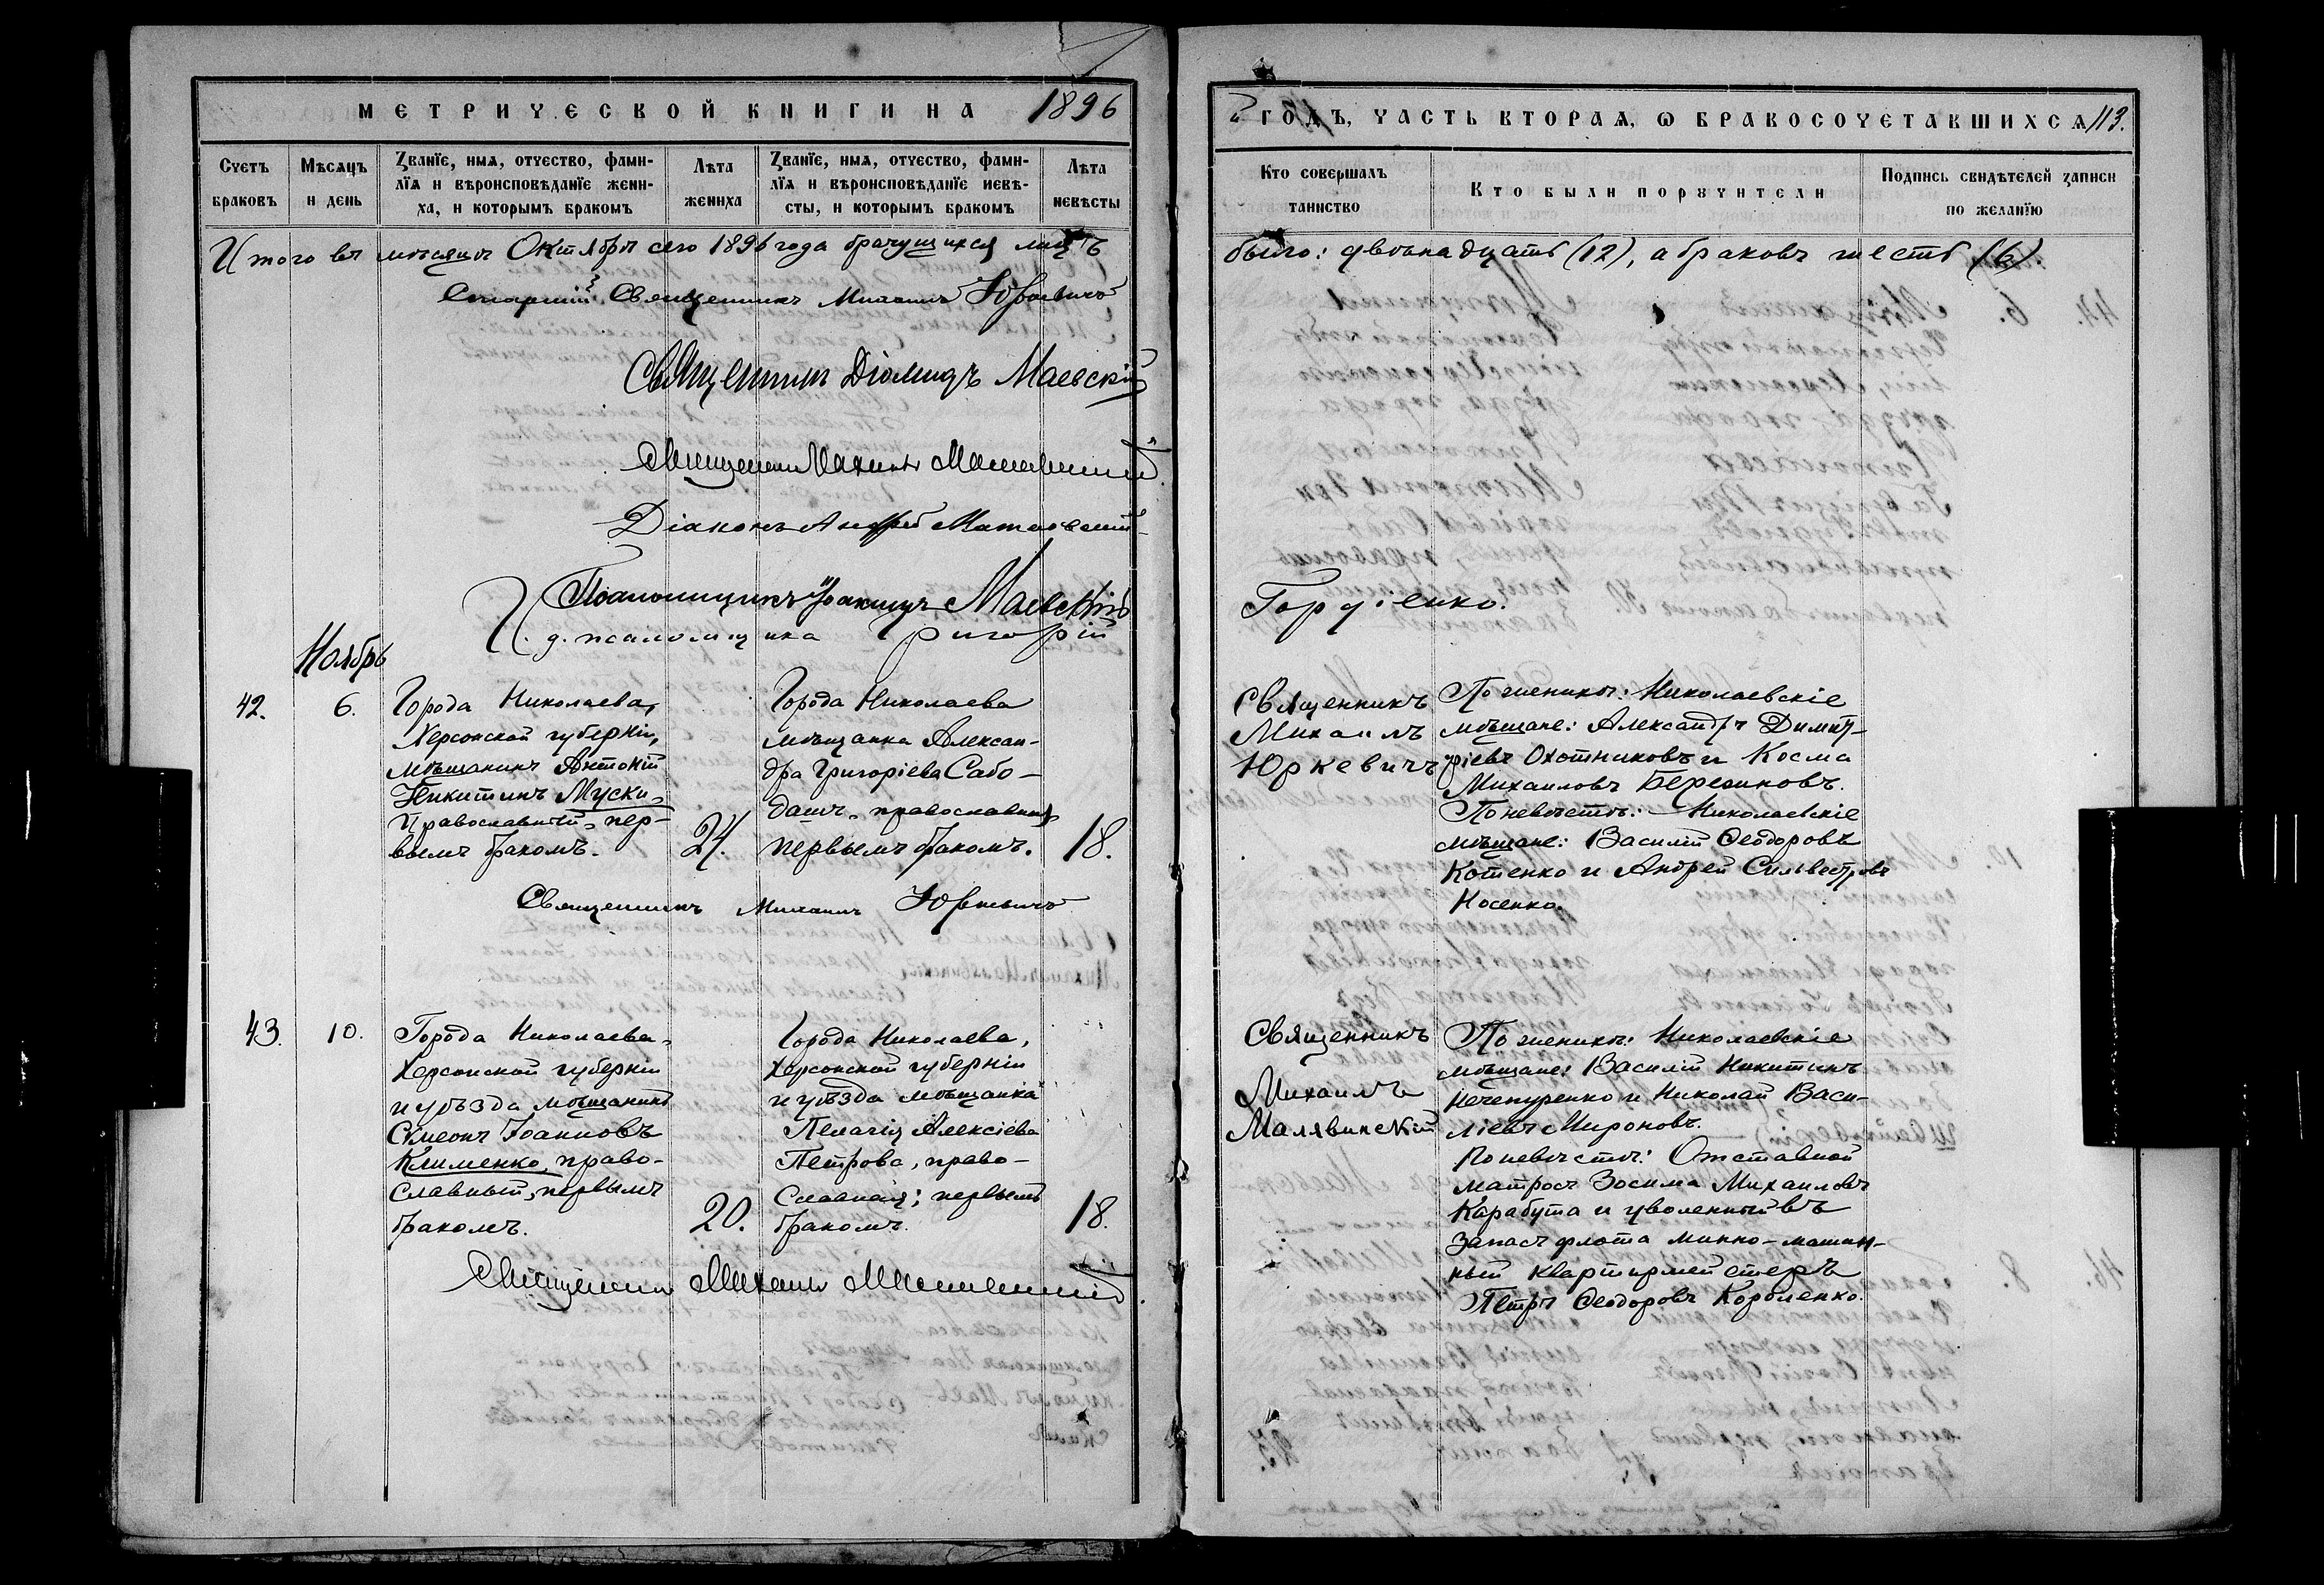 МЕТРИЧЕСКОЙ КНИГИ НА 1896
Счетъ браковъ
Мѣсяцъ и день
Званїе, имя, отчество, фами-
лїя и вѣроисповѣданїе жени-
ха, и которымъ бракомъ
Лѣта жениха
Званїе, имя, отчество, фами-
лїя и вѣроисповѣданїе невѣ-
сты, и которымъ бракомъ
Лѣта невѣсты
Итого въ мѣсяцѣ Октябрѣ сего 1896 года брачущихся лицъ
Старшій Священникъ Михаилъ Юркевичъ
Священникъ Діомидъ Маевскій
Священникъ Михаилъ Малявинскій
Діаконъ Андрей
Псаломщикъ Іоакимъ Маевскій
И. д. псаломщика Григорій
Ноябрь
42.
6.
Города Николаева,
Херсонской губерніи,
мѣщанинъ Антоній
Никитинъ Муски,
Православный, пер-
вымъ бракомъ.
24.
Города Николаева
мѣщанка Алексан-
дра Григоріева Сабо-
дашъ, православная,
первымъ бракомъ.
18.
Священникъ Михаилъ Юркевичъ
43.
10.
Города Николаева,
Херсонской губерніи
и уѣзда мѣщанинъ
Симеонъ Іоанновъ
Клименко, право-
славный, первымъ
бракомъ.
20.
Города Николаева,
Херсонской губерніи
и уѣзда мѣщанка
Пелагія Алексіева
Петрова, право-
славная; первымъ
бракомъ.
18.
Священникъ Михаилъ Малявинскій
ГОДЪ, ЧАСТЬ ВТОРАЯ, Ѡ БРАКОСОЧЕТАВШИХСЯ 113.
Кто совершалъ
таинство
Кто были порꙋчители
Подпись свидѣтелей записи
по желанїю
было: двѣнадцать (12), а браковъ шесть (6)
Гордіенко.
Священникъ
Михаилъ
Юркевичъ
По женихѣ: Николаевскіе
мѣщане: Александръ Димит-
ріевъ Охотниковъ и Косма
Михаиловъ Березиковъ.
По невѣстѣ: Николаевскіе
мѣщане: Василій Ѳеодоровъ
Котенко и Андрей Сильвестровъ
Носенко.
Священникъ
Михаилъ
Малявинскій
По женихѣ: Николаевскіе
мѣщане: Василій Никитинъ
Нечепуренко и Николай Васи-
ліевъ Мироновъ.
По невѣстѣ: Отставной
матросъ Зосима Михаиловъ
Карабута и уволенный въ
запасъ флота минно-машин-
ный квартирмейстеръ
Петръ Ѳеодоровъ Короленко.